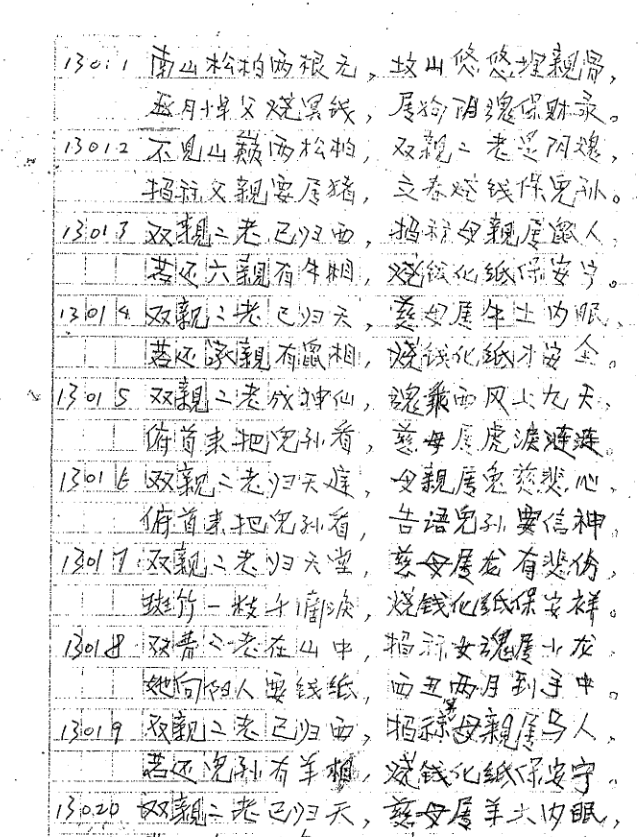 13011 南山松柏两根无,故山悠悠埋亲骨,
月悼父烧冥钱,属狗阴魂保财录。
13012 不见山巅两松柏,双親二老是阴魂,
招称父親要属猪,立春烧钱保儿孙。
13013 双親二老已归西,招称母親属鼠人,
若还六親有牛相,烧钱化纸保安宁。
13014 双親二老已归天,慈母属牛土内眠,
若还家親有鼠相,烧钱化纸才安全。
13015 双親二老成神仙,魂乘西风上九天,
俯首来把儿孙看,慈母属虎淚涟涟。
13016 双親二老归天庭,母親属兔慈悲心,
俯首来把儿孙看,告语儿孙要信神。
13017 双親二老归天堂,慈母属龙有悲伤,
斑竹一枝千滴淚,烧钱化纸保安祥。
13018 双青二老在山中,招称女魂属小龙,
她向阳人要钱纸,西丑两月到手中。
13019 双親二老已归西,招称母親属马人,
若还儿孙有羊相,烧钱化纸保安宁。
13020 双親二老已归天,慈母属羊土内眠,